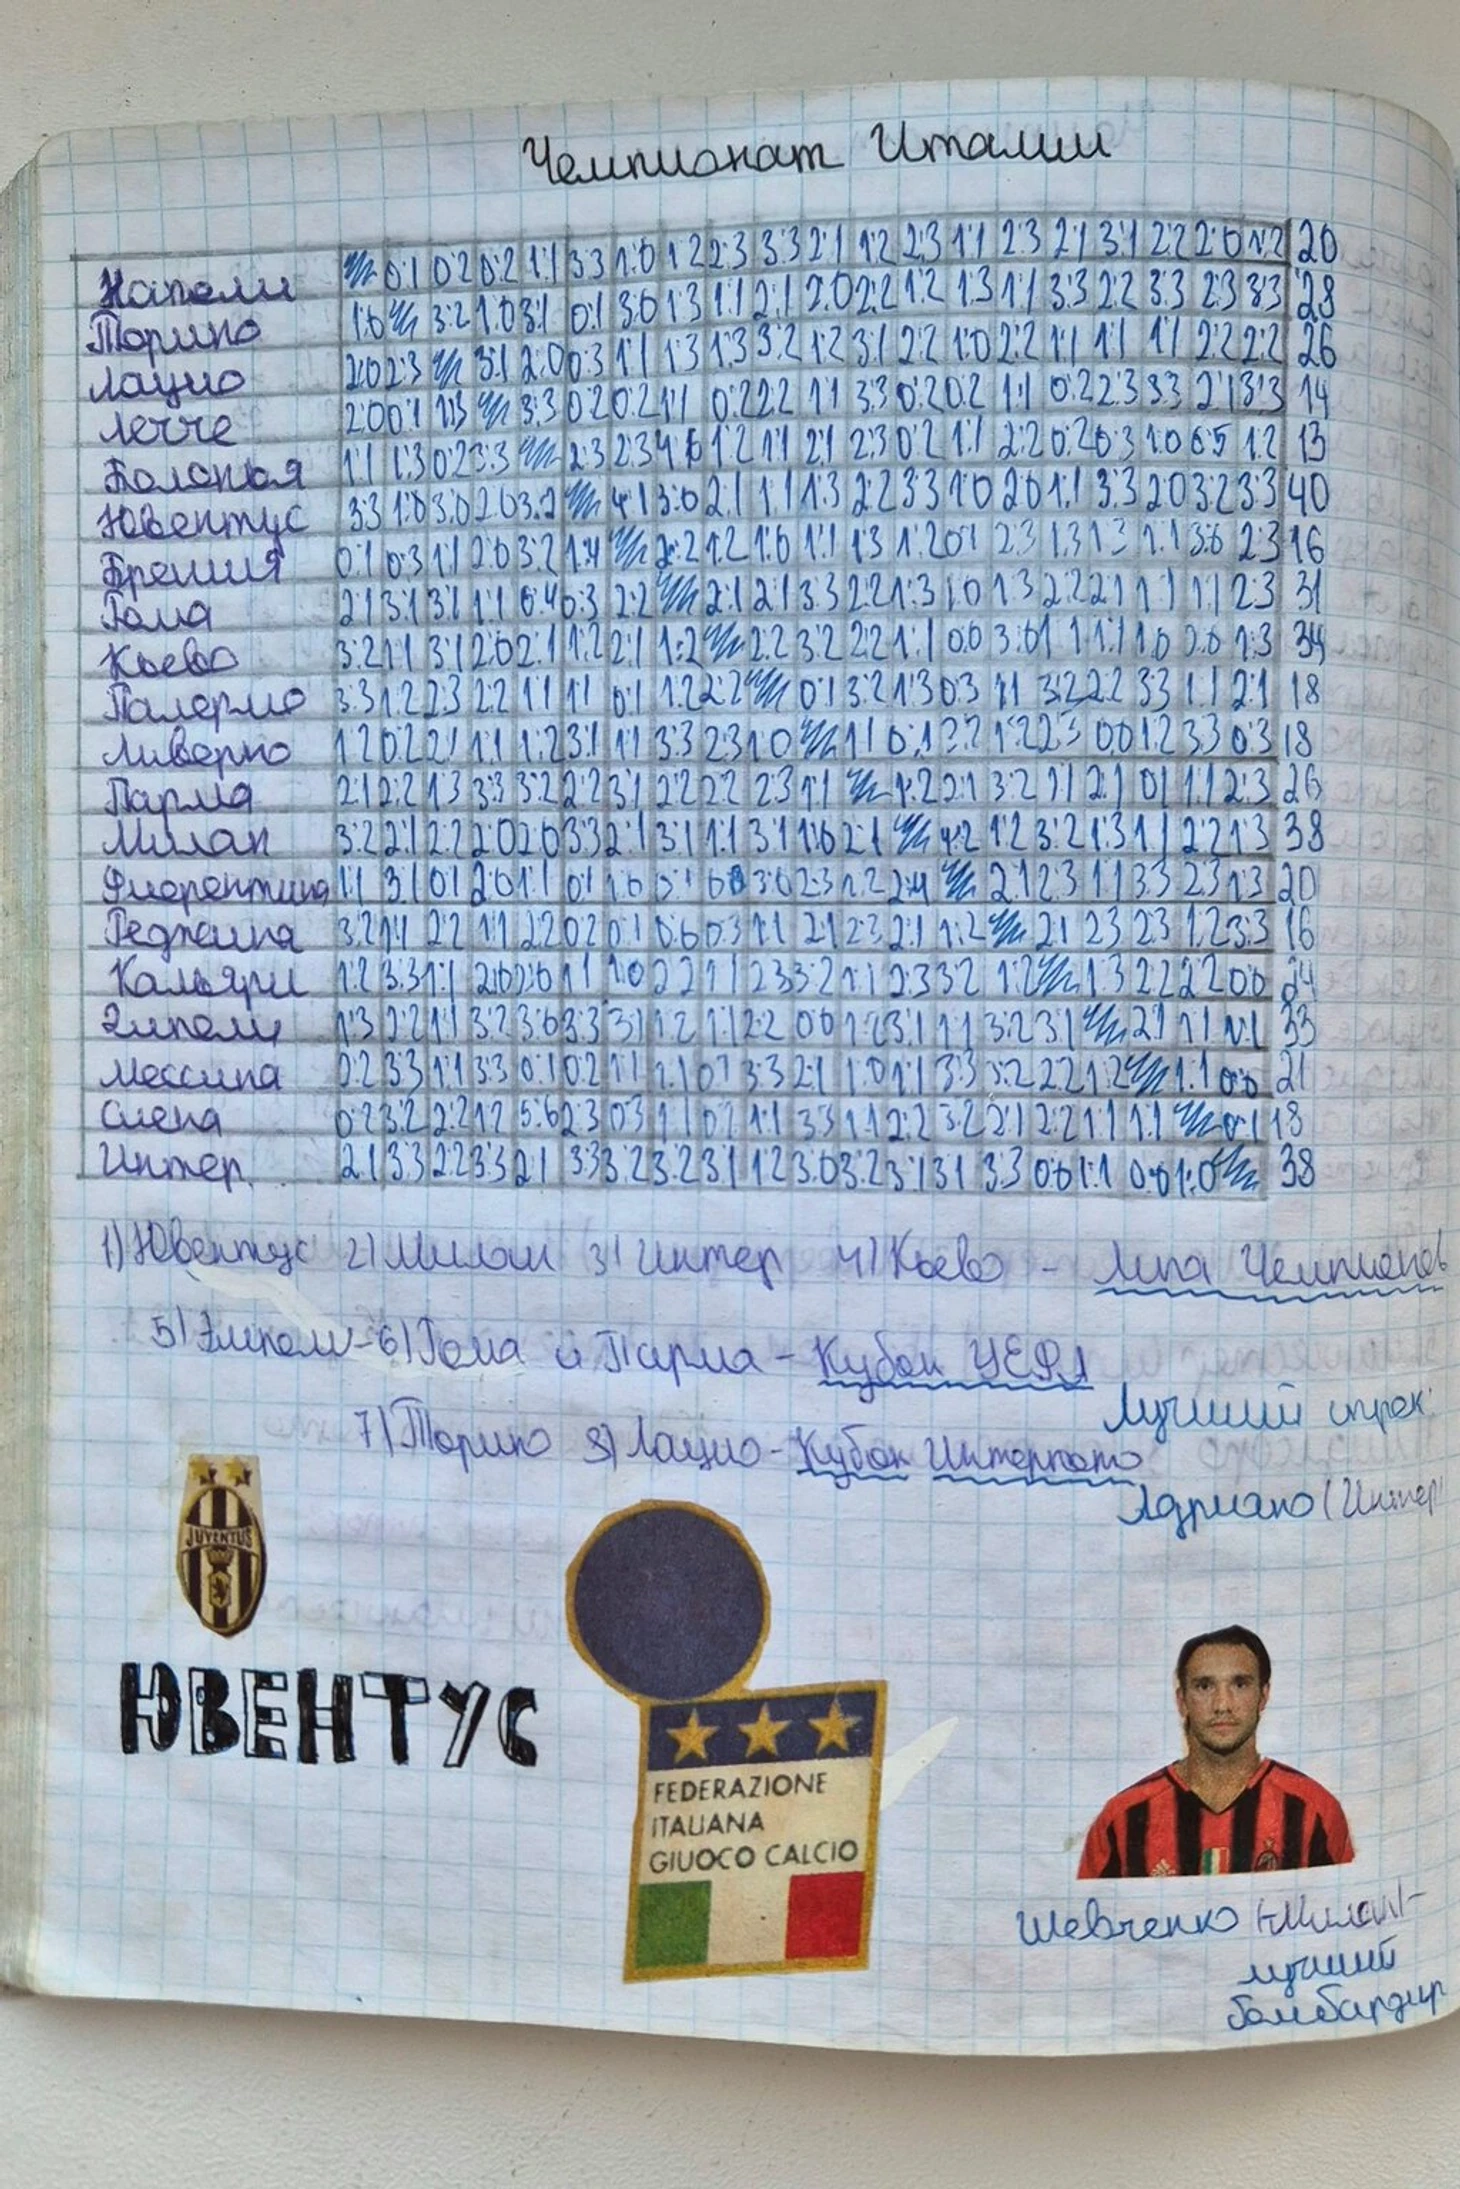 Чемпионат Италии
Наполи 0:1 0:2 0:2 1:1 3:3 1:0 1:2 2:3 3:3 2:1 1:2 2:3 1:1 2:3 2:1 3:1 2:2 2:0 1:2 20
Торино 1:0 3:2 1:0 3:1 0:1 3:0 1:3 1:1 2:1 2:0 2:2 1:2 1:3 1:1 3:3 2:2 3:3 2:3 3:3 28
Лацио 2:0 2:3 3:1 2:0 0:3 1:1 1:3 1:3 3:2 1:2 3:1 2:2 1:0 2:2 1:1 1:1 1:1 2:2 2:2 26
Лечче 2:0 0:1 1:3 3:3 0:2 0:2 1:1 0:2 2:2 1:1 3:3 0:2 0:2 1:1 0:2 2:3 3:3 2:1 3:3 14
Болонья 1:1 1:3 0:2 3:3 2:3 2:3 4:0 1:2 1:1 2:1 2:3 0:2 1:1 2:2 0:2 0:3 1:0 6:5 1:2 13
Ювентус 3:3 1:0 3:0 2:0 3:2 4:1 3:0 2:1 1:1 1:3 2:2 3:3 1:0 2:0 1:1 3:3 2:0 3:2 3:3 40
Брешия 0:1 0:3 1:1 2:0 3:2 1:4 2:2 1:2 1:0 1:1 1:3 1:2 0:1 2:3 1:3 1:3 1:1 3:0 2:3 16
Рома 2:1 3:1 3:1 1:1 0:4 0:3 2:2 2:1 2:1 3:3 2:2 1:3 1:0 1:3 2:2 2:1 1:1 1:1 2:3 31
Кьево 3:2 1:1 3:1 2:0 2:1 1:2 2:1 1:2 2:2 3:2 2:2 1:1 0:0 3:0 1:1 1:1 1:0 2:0 1:3 34
Палермо 3:3 1:2 2:3 2:2 1:1 1:1 0:1 1:2 2:2 0:1 3:2 1:3 0:3 1:1 3:2 2:2 3:3 1:1 2:1 18
Ливерно 1:2 0:2 2:1 1:1 1:2 3:1 1:1 3:3 2:3 1:0 1:1 0:1 3:2 1:2 2:3 0:0 1:2 3:3 0:3 18
Парма 2:1 2:2 1:3 3:3 3:2 2:2 3:1 2:2 2:2 2:3 1:1 1:2 2:1 3:2 1:1 2:1 0:1 1:1 2:3 26
Милан 3:2 2:1 2:2 2:0 2:0 3:3 2:1 3:1 1:1 3:1 1:0 2:1 4:2 1:2 3:2 1:3 1:1 2:2 1:3 38
Фиорентина 1:1 3:1 0:1 2:0 1:1 0:1 1:0 0:1 0:0 3:0 2:3 1:2 2:4 2:1 2:3 1:1 3:3 2:3 1:3 20
Реджина 3:2 1:1 2:2 1:1 2:2 0:2 0:1 0:0 0:3 1:1 2:1 2:3 2:1 1:2 2:1 2:3 2:3 1:2 3:3 16
Кальяри 1:2 3:3 1:1 2:0 2:0 1:1 1:0 2:2 1:1 2:3 3:2 1:1 2:3 3:2 1:2 1:3 2:2 2:2 0:0 24
Эмполи 1:3 2:2 1:1 3:2 3:0 3:3 3:1 1:2 1:1 2:2 0:0 1:2 3:1 1:1 3:2 3:1 2:1 1:1 1:1 33
Мессина 0:2 3:3 1:1 3:3 0:1 0:2 1:1 1:1 0:1 3:3 2:1 1:0 1:1 3:3 3:2 2:2 1:2 1:1 0:0 21
Сиена 0:2 3:2 2:2 1:2 5:6 2:3 0:3 1:1 0:2 1:1 3:3 1:1 2:2 3:2 2:1 2:2 1:1 1:1 0:1 18
Интер 2:1 3:3 2:2 3:3 2:1 3:3 3:2 3:2 3:1 1:2 3:0 3:2 3:1 3:1 3:3 0:0 1:1 0:0 1:0 38
1) Ювентус 2) Милан 3) Интер 4) Кьево - Лига Чемпионов
5) Эмполи - 6) Рома и Парма - Кубок УЕФА
7) Торино 8) Лацио - Кубок Интертото
Лучший игрок:
Адриано (Интер)
JUVENTUS
ЮВЕНТУС
FEDERAZIONE
ITALIANA
GIUOCO CALCIO
Шевченко (Милан) -
лучший
бомбардир